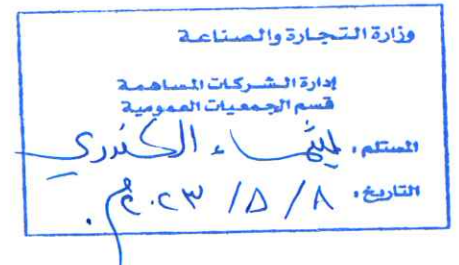 وزارة التجارة والصناعة
إدارة الشركات المساهمة
قسم الجمعيات العمومية
المستلم : الكندري
التاريخ : ٨ / ٥ / ٢٠٢٣م.